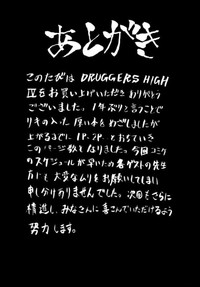 あとがき
このたびは DRUGGERS HIGH
Ⅳをお買い上げいただきありがとう
ございました。1年ぶりと言うことで
リキの入った厚い本をめざしましたが
上がるまでに
このページ数となりました。今回コミケ
のスケジュールが早いため各ゲストの先生
方にも大変なムリをお願いしてしまい
申し分けありませんでした。次回もさらに
精進し、みなさんに喜こんでいただけるよう
努力します。